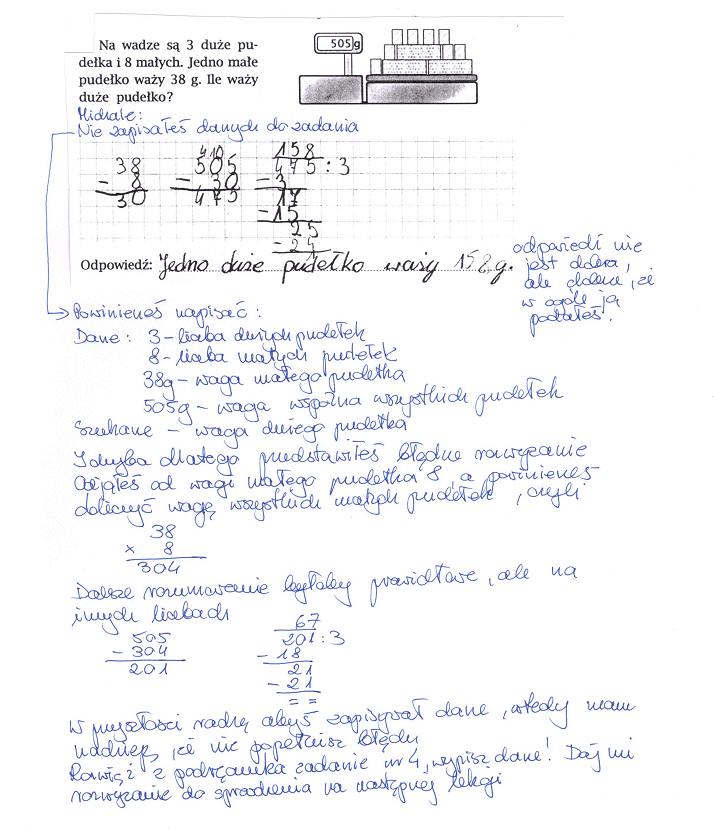 Na wadze są 3 duże pu-
dełka i 8 małych. Jedno małe
pudełko waży 38 g. Ile waży
duże pudełko?
505g
Michale:
Nie zapisałeś danych do zadania
38
- 8
30
4 10
505
- 30
475
158
475 : 3
- 3
17
- 15
25
- 24
Odpowiedź: Jedno duże pudełko waży 158 g.
odpowiedź nie
jest dobra,
ale dobrze, że
w ogóle ją
podałeś.
Powinieneś napisać :
Dane : 3 - liczba dużych pudełek
8 - liczba małych pudełek
38g - waga małego pudełka
505g - waga wspólna wszystkich pudełek
Szukane - waga dużego pudełka
I chyba dlatego przedstawiłeś błędne rozwiązanie
Odjąłeś od wagi małego pudełka 8, a powinieneś
obliczyć wagę wszystkich małych pudełek, czyli
38
x 8
304
Dalsze rozumowanie byłoby prawidłowe, ale na
innych liczbach
505
- 304
201
67
201 : 3
- 18
21
- 21
= =
W przyszłości radzę abyś zapisywał dane, wtedy mam
nadzieję, że nie popełnisz błędu
Rozwiąż z podręcznika zadanie nr 4, wypisz dane! Daj mi
rozwiązanie do sprawdzenia na następnej lekcji